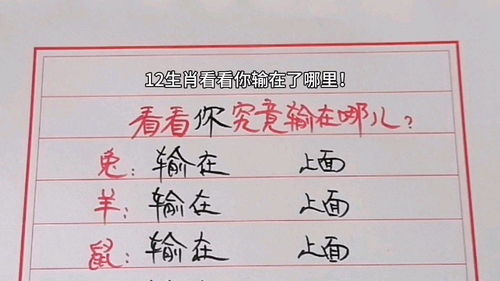 12生肖看看你输在了哪里!
看看你究竟输在哪儿?
兔:输在 上面
羊:输在 上面
鼠:输在 上面